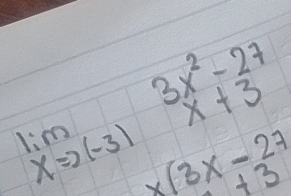 lim x=>(-3) 3x² - 27
x + 3
x(3x - 27
+ 3